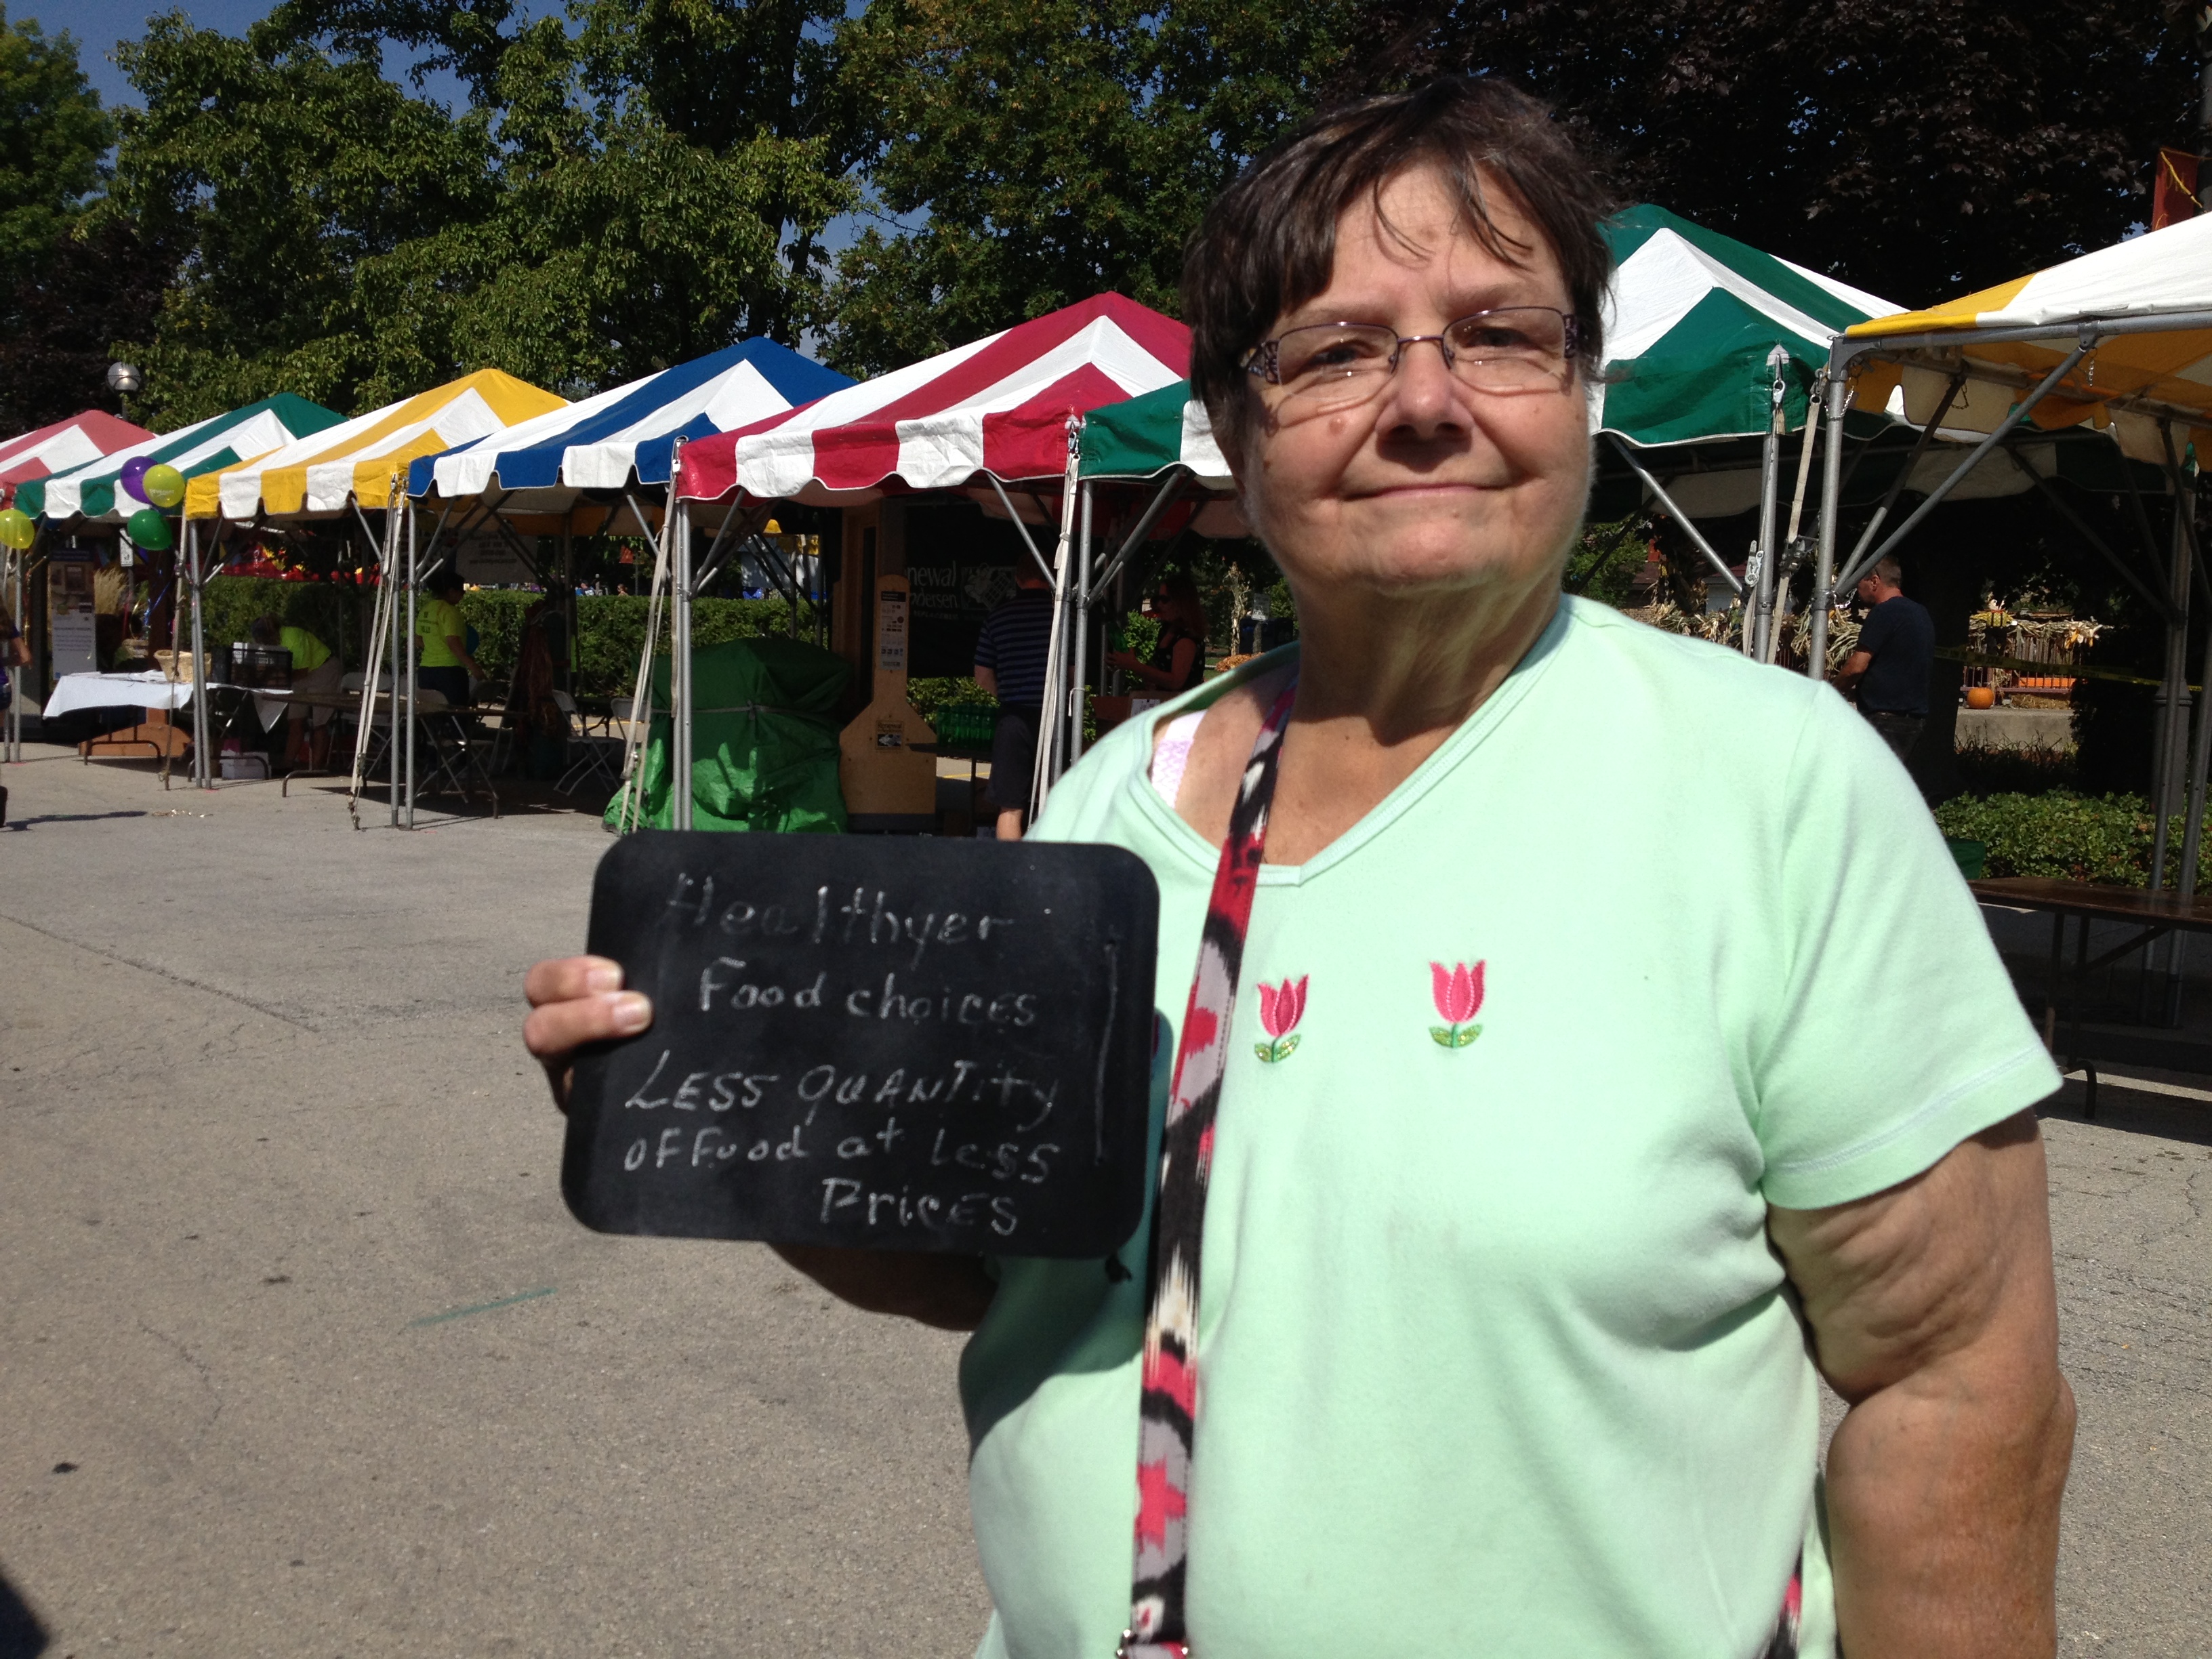 Healthyer
Food choices
LESS QUANTITY
OF Food at LESS
PriCES
newal
ndersen